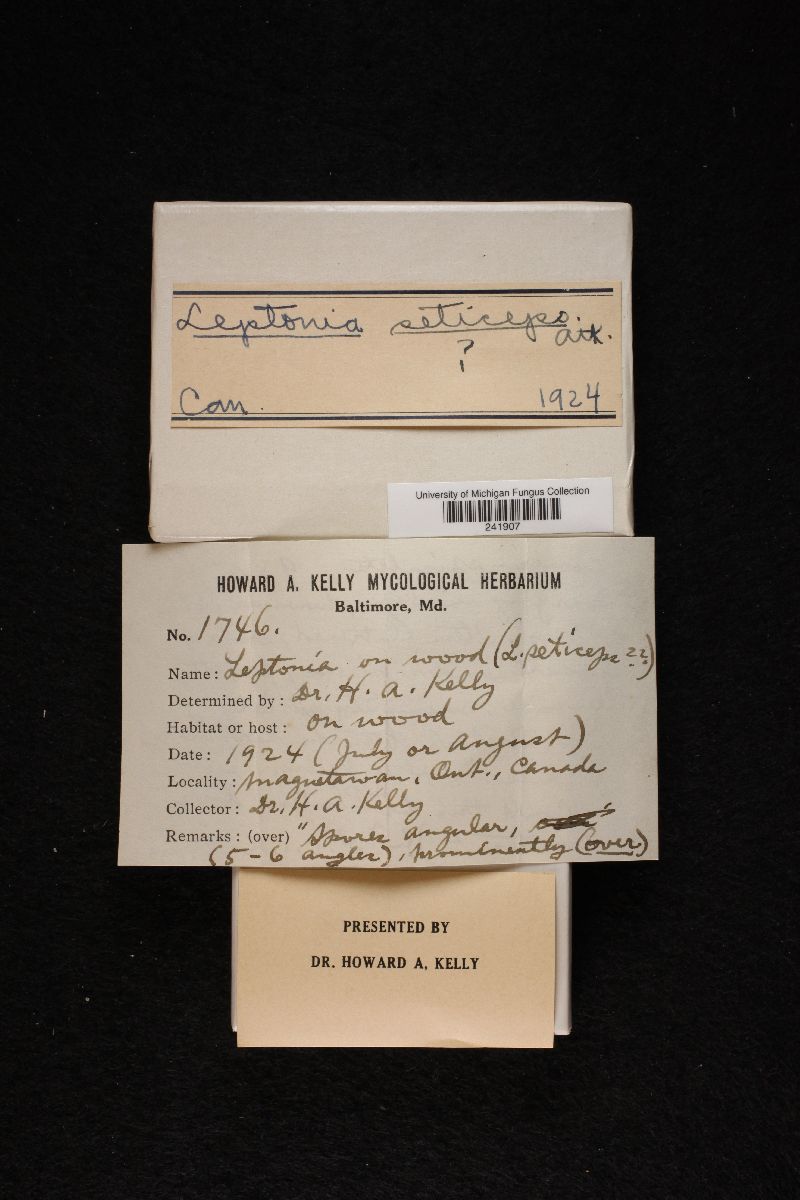 Leptonia seticeps.
Atk.
?
Can. 1924
University of Michigan Fungus Collection
241907
HOWARD A. KELLY MYCOLOGICAL HERBARIUM
Baltimore, Md.
No. 1746.
Name: Leptonia on wood (L. seticeps ??)
Determined by: Dr. H. A. Kelly
Habitat or host: on wood
Date: 1924 (July or August)
Locality: Magnetawan, Ont., Canada
Collector: Dr. H. A. Kelly
Remarks: (over) "Spores angular,
(5-6 angles), prominently (over)
PRESENTED BY
DR. HOWARD A. KELLY